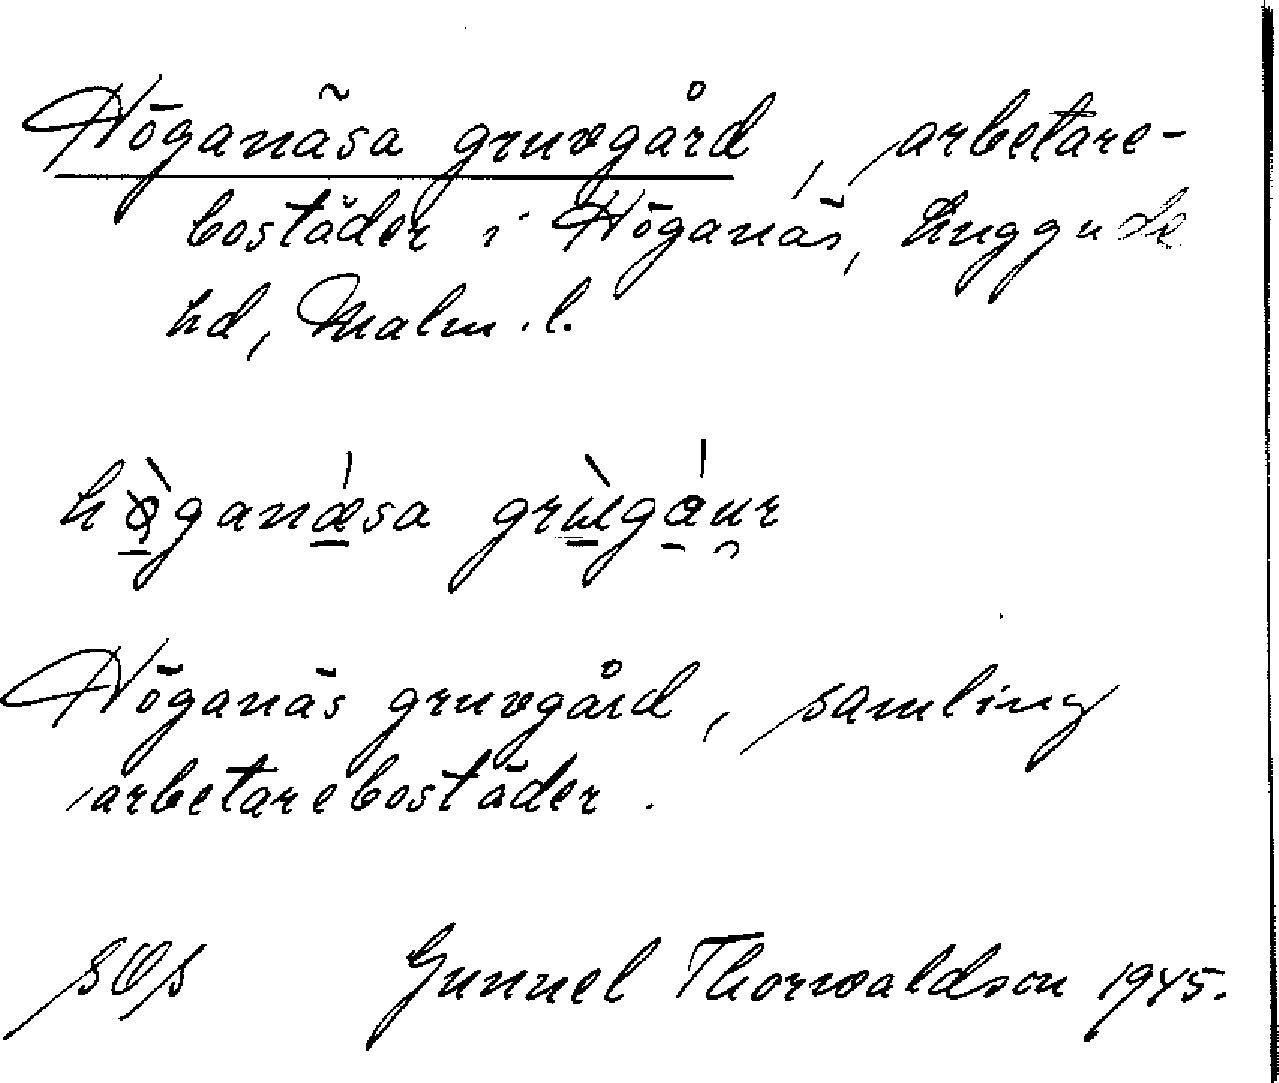 Höganäsa gruvgård, arbetare-
bostäder i Höganäs, Luggude
hd, Malm. l.
hø̀ganǽsa grùgáu̯r
Höganäs gruvgård, samling
arbetarebostäder.
SOS Gunnel Thorwaldson 1945.